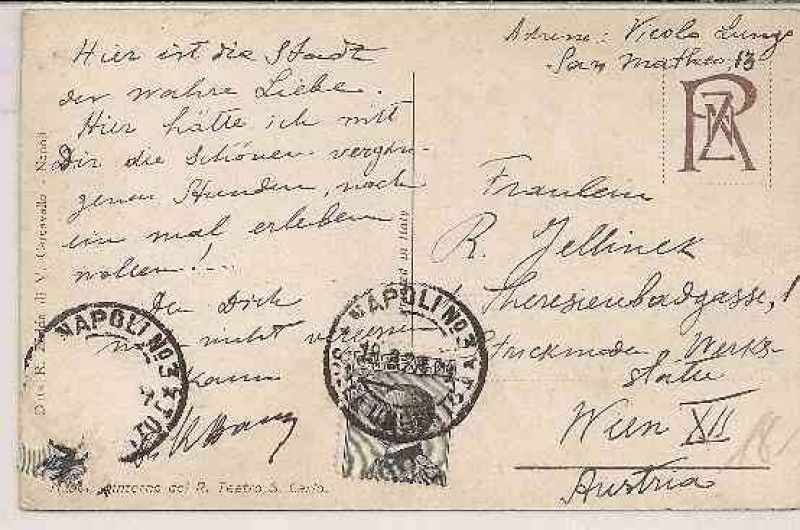 Adresse: Vicolo Lungo
San Matheo, 13
Hier ist die Stadt
der wahre Liebe.
Hier hätte ich mit
Dir die Schönen vergan-
genen Stunden, noch
ein mal erleben
wollen!..
Dich
nicht
kann
Fräulein
R. Jellinek
Theresienbadgasse, 1
Strickmoden Werk-
statte
Wien XII
Austria
NAPOLI No 3
NAPOLI No 3
Ditta R. Zedda di V. Carcavallo - Napoli
in Italy
Interno del R. Teatro S. Carlo.